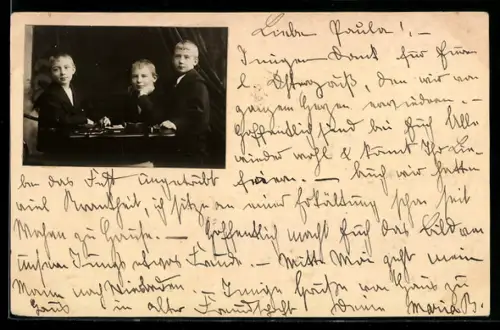 Liebe Paula! –
Innigen Dank für Euren
l. Ostergruß, den wir von
ganzem Herzen erwidern. –
Hoffentlich sind bei Euch Alle
wieder wohl & könnt Ihr
– Auch wir hatten
das Fest ungetrübt
viel Krankheit, ich sitze an einer Erkältung schon seit
Wochen zu Hause. – Hoffentlich macht Euch das Bild von
unseren Jungs etwas Freude. – Mitte Mai geht mein
Mann nach Wiesbaden. – Innige Grüße von Haus zu
Haus in alter Freundschaft Deine Maria B.